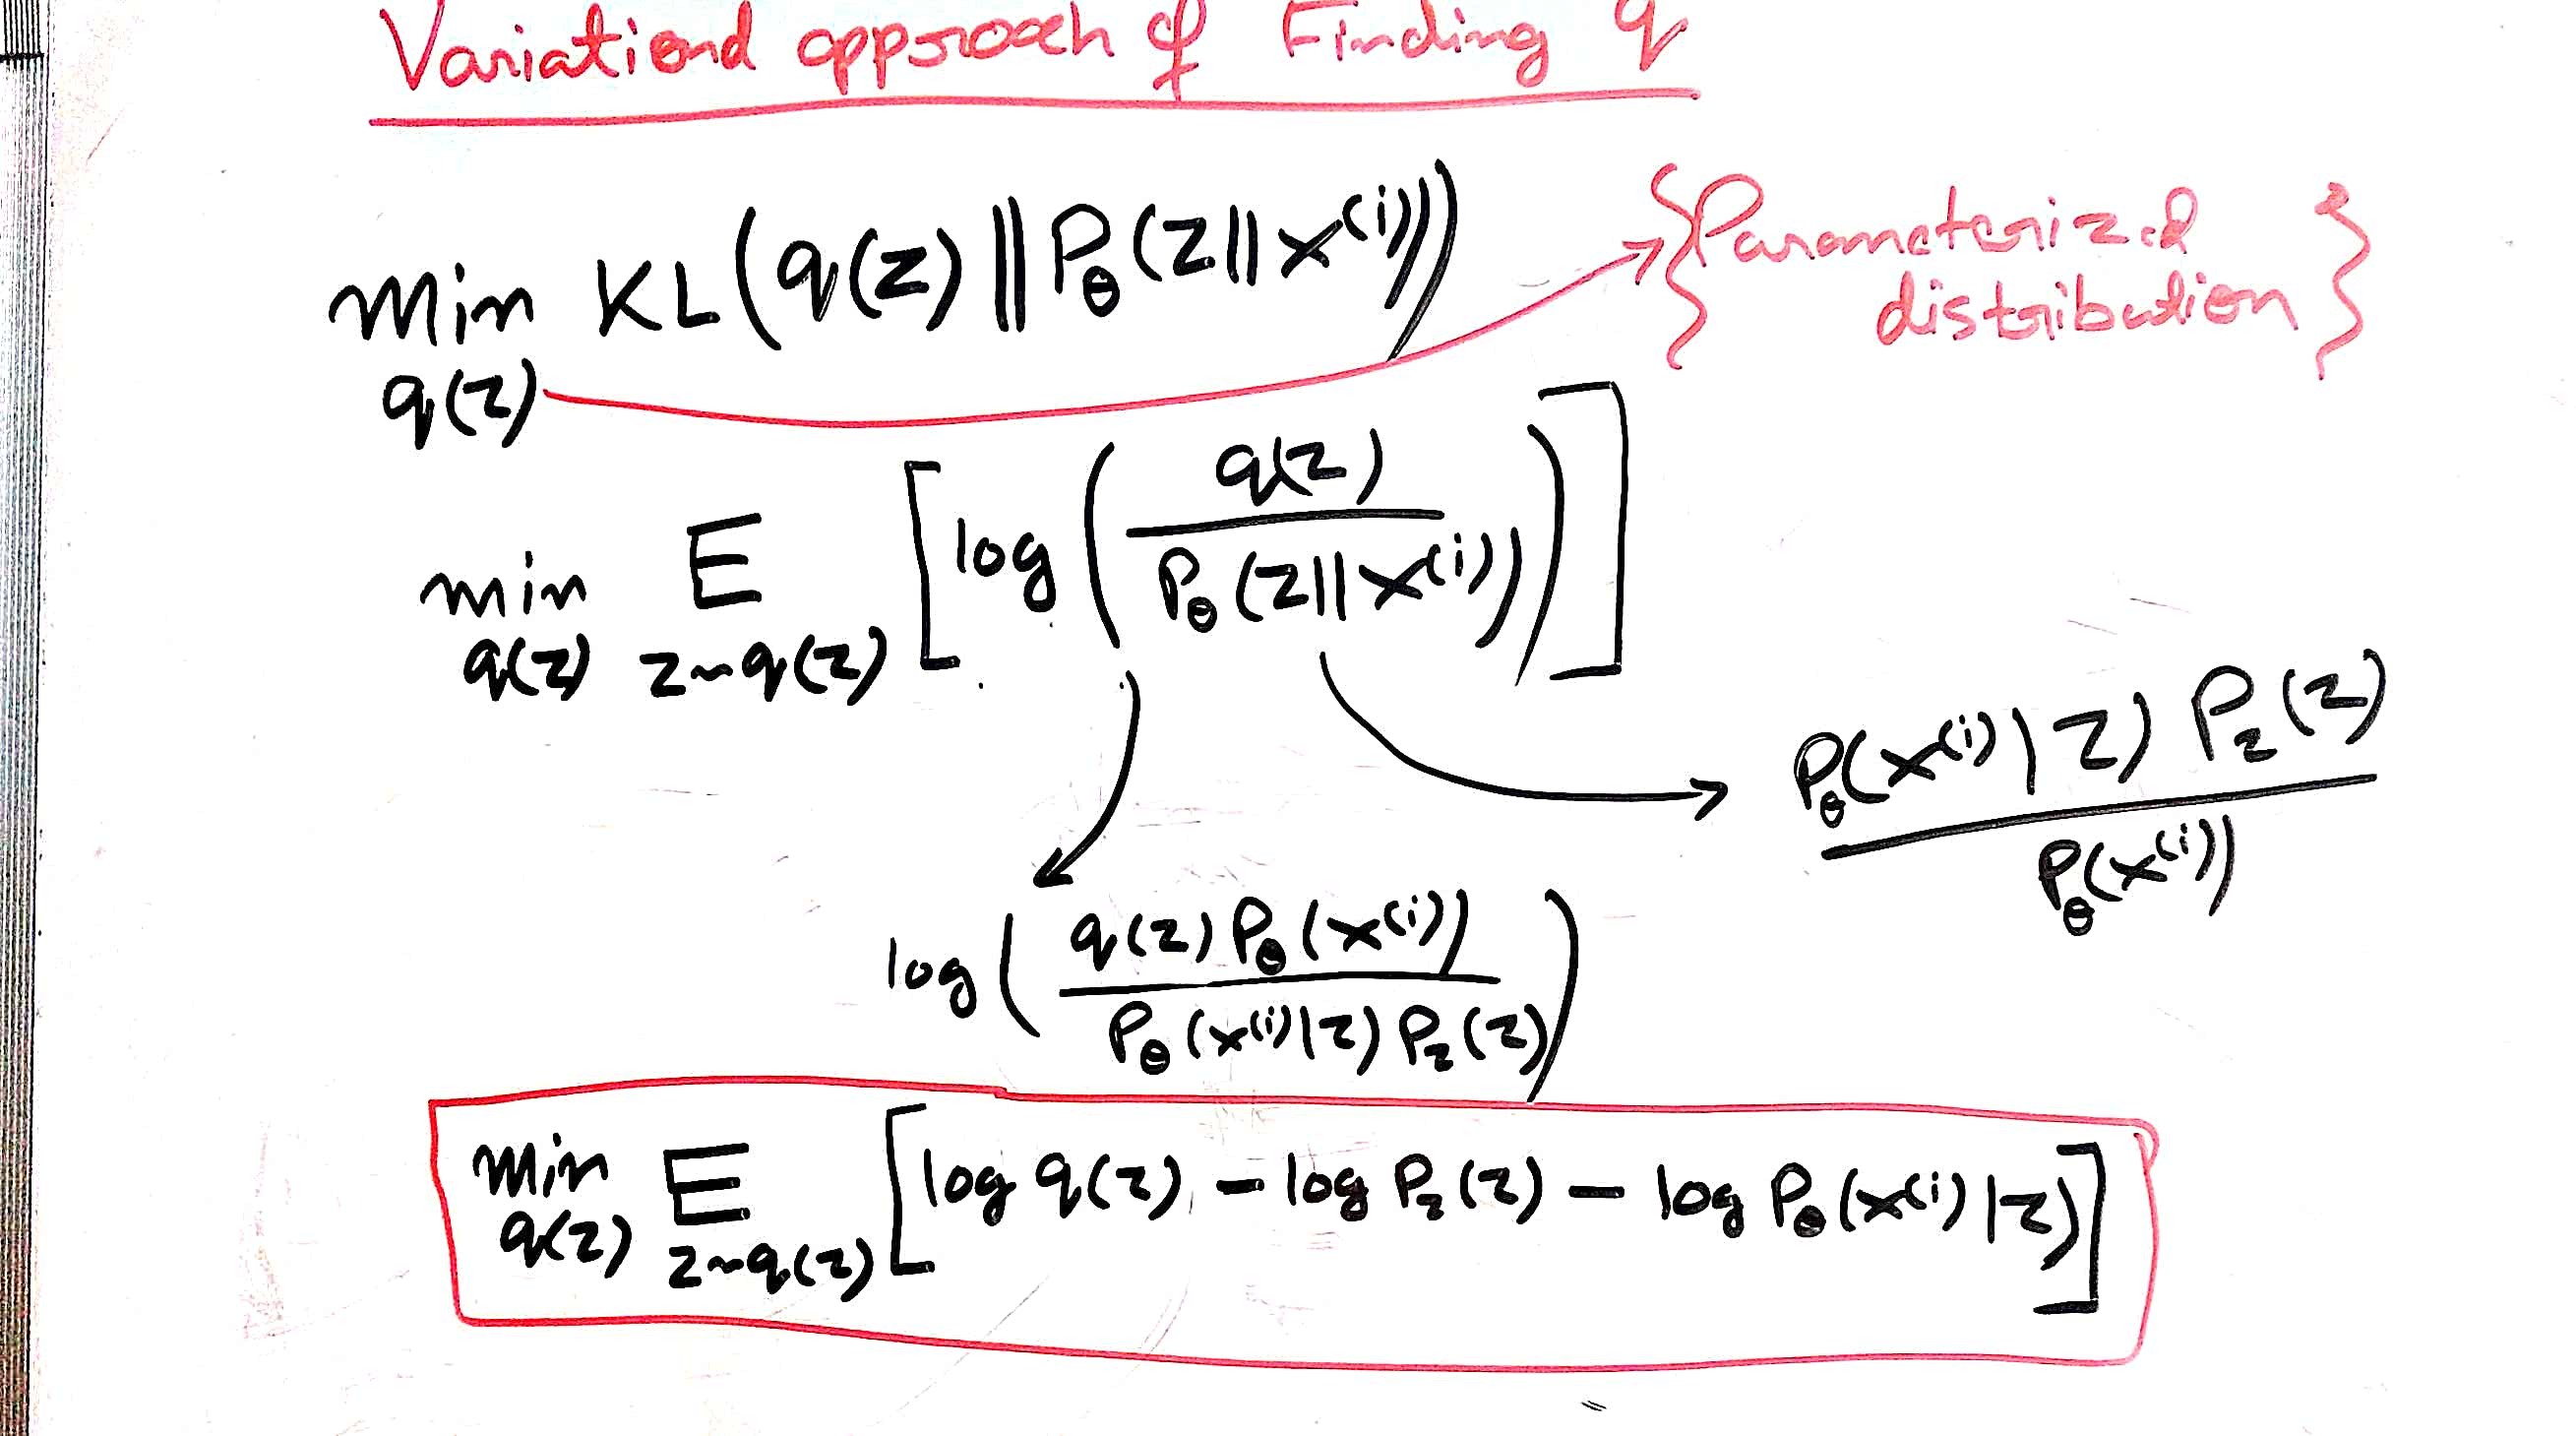 Variational approach of Finding q
min KL(q(z) || Pθ(z||x⁽ⁱ⁾))
q(z)
{Parameterized
distribution}
min E [log (q(z) / Pθ(z||x⁽ⁱ⁾))]
q(z) z~q(z)
Pθ(x⁽ⁱ⁾|z) Pz(z)
Pθ(x⁽ⁱ⁾)
log (q(z) Pθ(x⁽ⁱ⁾) / Pθ(x⁽ⁱ⁾|z) Pz(z))
min E [log q(z) - log Pz(z) - log Pθ(x⁽ⁱ⁾|z)]
q(z) z~q(z)